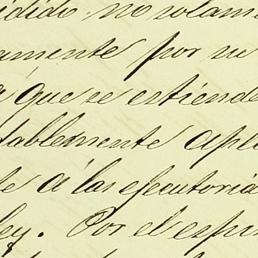 dido no solam
amente por su
á que se estiende
tablemente apli
te á las ejecutoria
ley. Por el espír